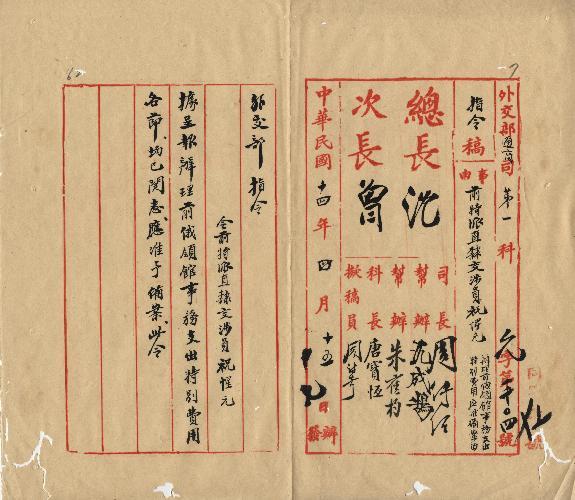 外交部通商司第一科
指令稿
事由
前特派直隸交涉員祝惺元
辦理前俄領館事務支出
特別費用應准備案由
元字第 號
總長沈
次長曾
司長周
幫辦
幫辦朱
科長唐寶恆
擬稿員周
中華民國十四年四月十五日辦發
外交部指令
令前特派直隸交涉員祝惺元
據呈報辦理前俄領館事務支出特別費用
各節均已閱悉應准予備案此令